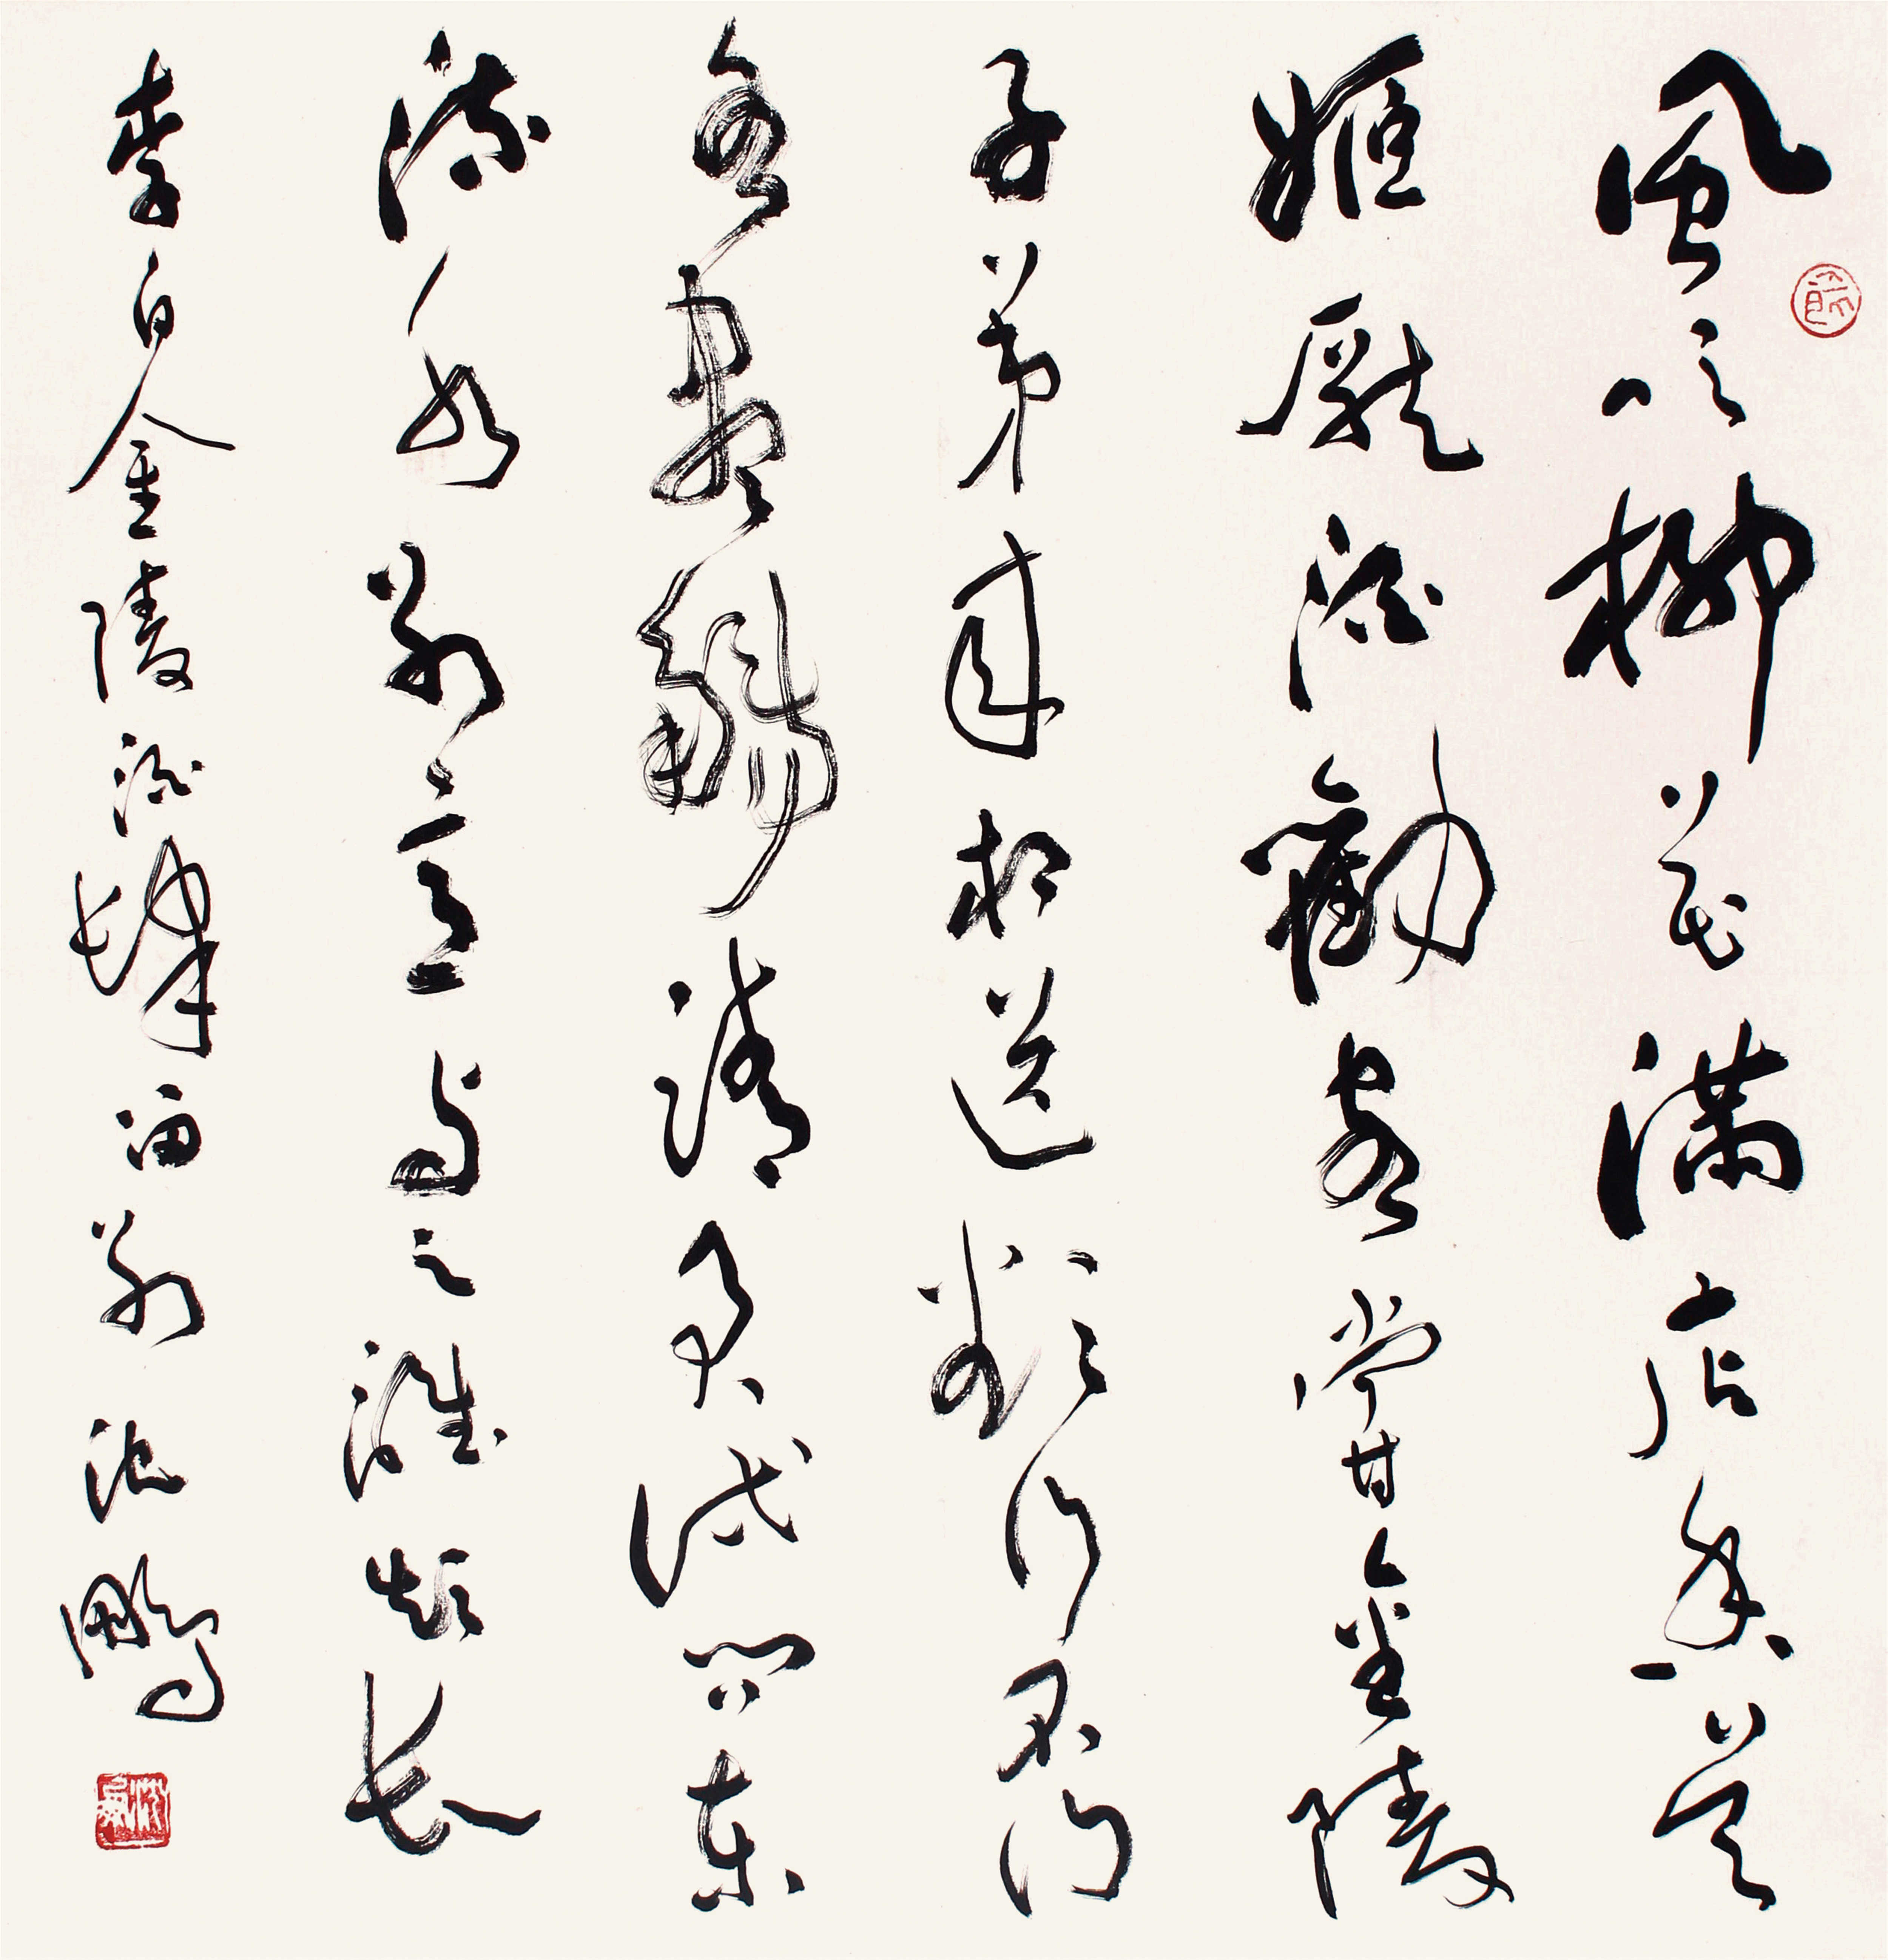 風吹柳花滿店香吳
姬壓酒勸客嘗金陵
子弟來相送欲行不行
各盡觴請君試問東
流水別意與之誰短長
李白金陵酒肆留別 沈鵬